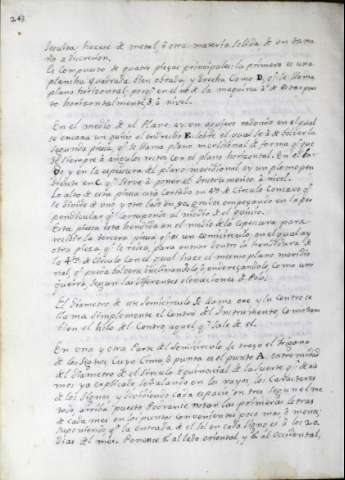 243
hacese de metal, o otra materia solida, de un tama
ño a discrecion,
Se compone de quatro pieças principales: la primera es una
plancha quadrada bien obrada, y derecha como D, q.e se llama
plano horizontal, porq.e en el de la maquina a de estar pues
to horizontalmente, o a nivel.
En el medio de el Plano ay un agujero redondo en el qual
se encaxa un quicio E. sobre el qual se a de bolver la
segunda pieza, q.e se llama plano meridional de forma q.e que
de siempre a angulos rectos con el plano horizontal. En el
y en la abertura del plano meridional ay un plomo pen
diente en C q.e sirve a poner el Instrumento a nivel.
Lo alto de esta pieza esta cortado en 4.to de Circulo Concavo q.e
se divide de uno y otro lado en 90 grados empeçando en la per
pendicular q.e corresponde al medio del quicio.
Esta pieza esta hendida en el medio de la espesura, para
recibir la tercera pieza q.e es un semicirculo, en el qual ay
otra pieza q.e se rosca, para entrar dentro la hendidura de
la 4.ta de Circulo con el qual hace el mismo plano meridio
nal, q.e pueda bolverse inclinandola, o endereçandola, como uno
quiere, segun las diferentes elevaciones de Polo.
El diametro de este semicirculo, se llama exe y su centro se
llama simplemente el Centro del Instrumento, como tam
bien el hilo del Centro aquel q.e sale de el.
En una y otra parte del semicirculo se traça el trigono
de los Signos, Cuya Cima, o punta es el punto A, extremidad
del diametro de el circulo Equinocial de la suerte q.e he
mos ya explicado señalando en los rayos los Caracteres
de los Signos, y dividiendo cada espacio en tres segun el me
todo arriba puesto. Podranse notar las primeras letras
de cada mes en los puntos convenientes poco mas, o menos,
suponiendo q.e la entrada de el Sol en cada signo es a los 20
dias del mes. Ponense al lado oriental, y al occidental,